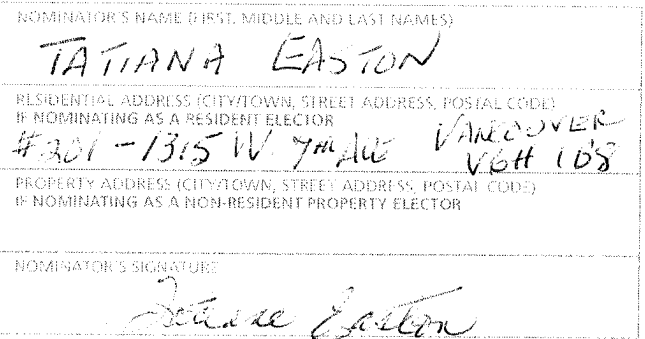 NOMINATOR'S NAME (FIRST, MIDDLE AND LAST NAMES)
TATIANA EASTON
RESIDENTIAL ADDRESS (CITY/TOWN, STREET ADDRESS, POSTAL CODE)
IF NOMINATING AS A RESIDENT ELECTOR
#201-1315 W. 7TH AVE VANCOUVER
V6H 1B8
PROPERTY ADDRESS (CITY/TOWN, STREET ADDRESS, POSTAL CODE)
IF NOMINATING AS A NON-RESIDENT PROPERTY ELECTOR
NOMINATOR'S SIGNATURE
Easton